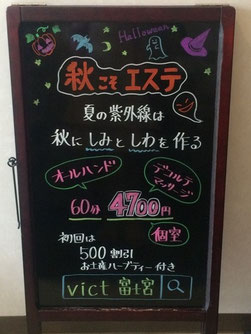 Halloween
秋こそエステ
夏の紫外線は
秋にしみとしわを作る
オールハンド
デコルテ
マッサージ
60分 4700円
個室
初回は
500割引
お土産ハーブティー付き
vict 富士宮